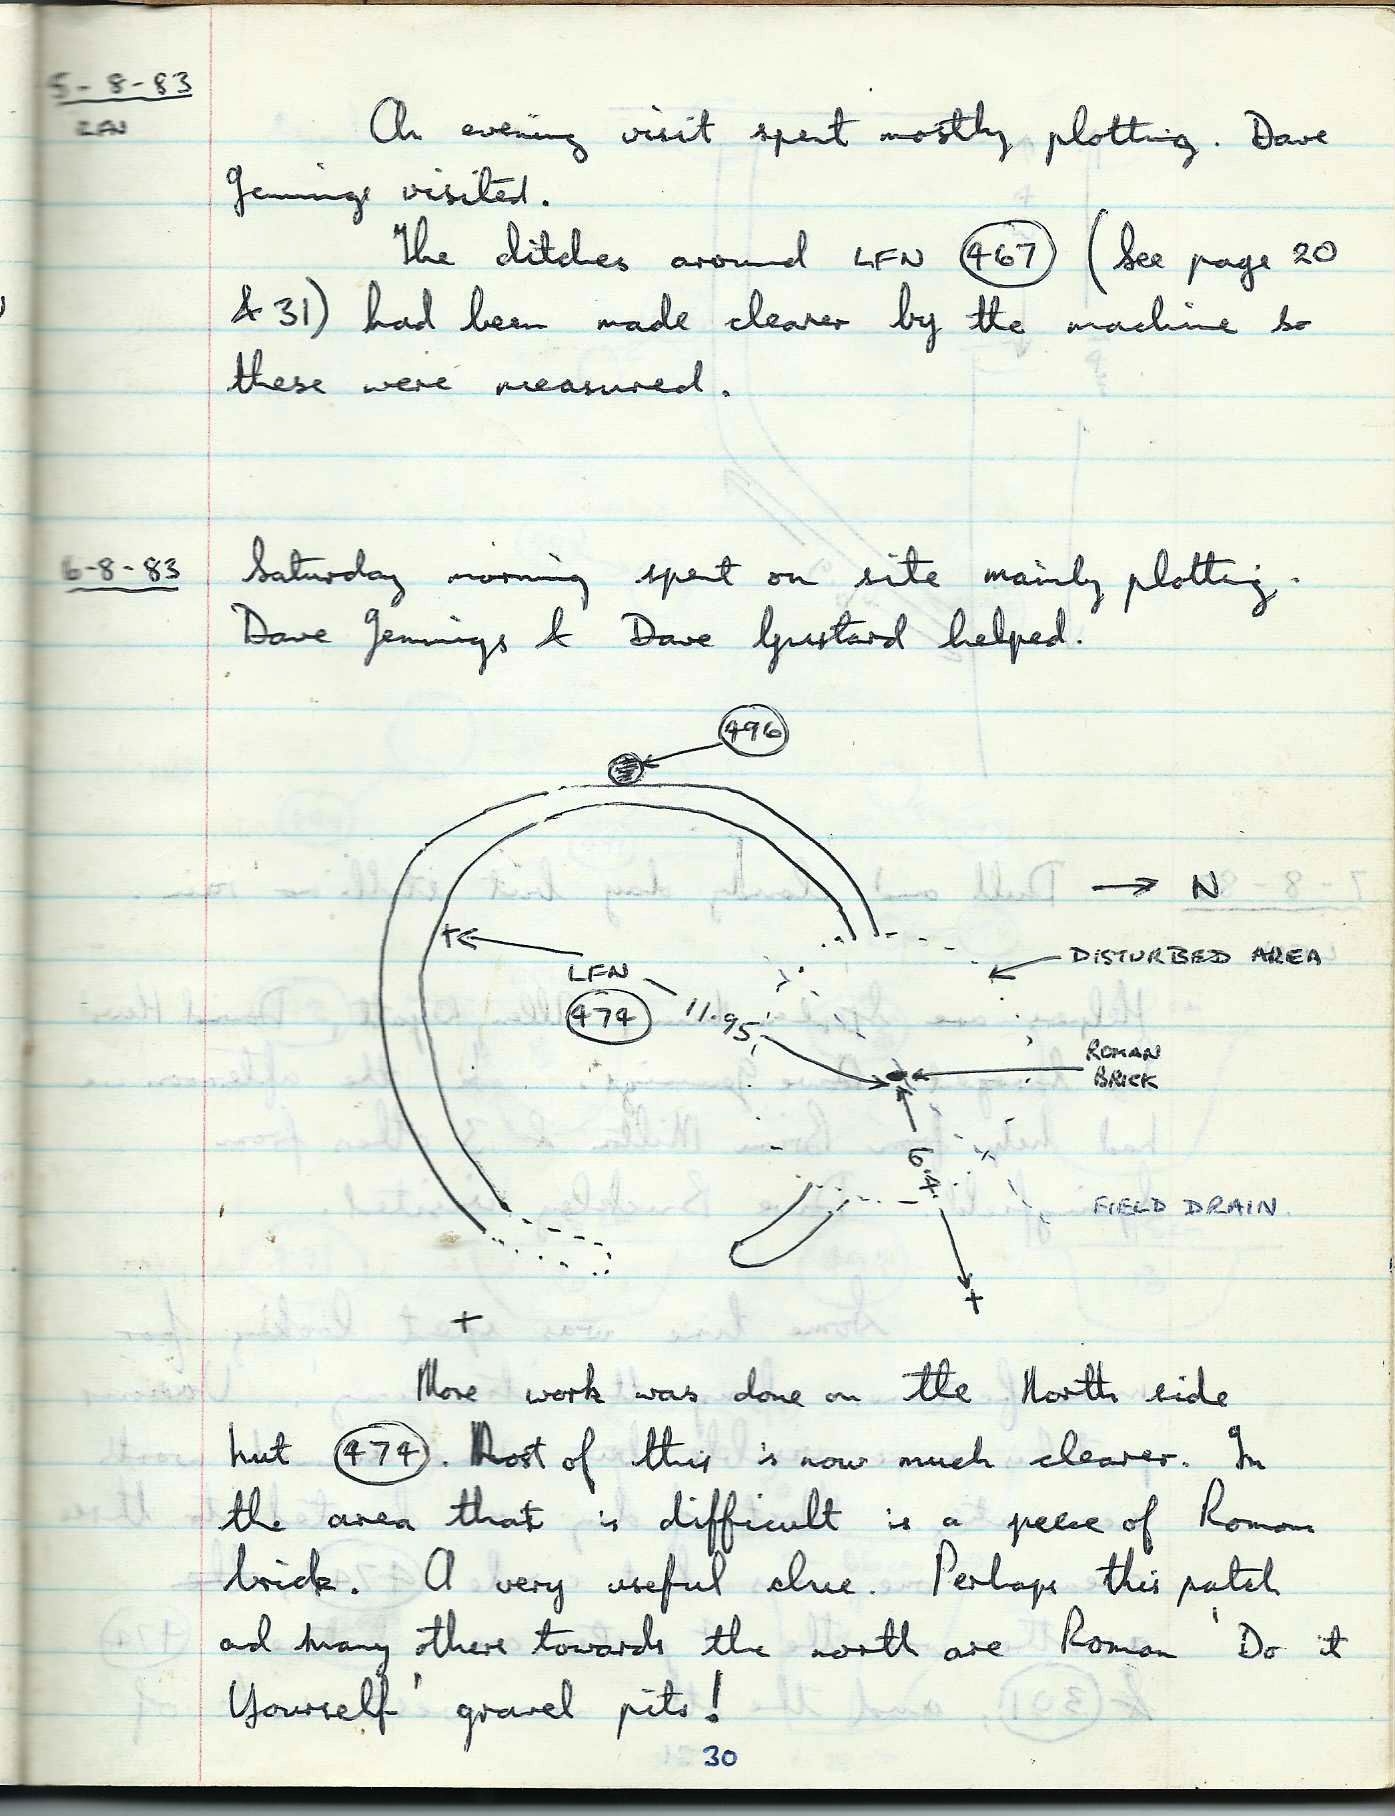 5-8-83
LFN
An evening visit spent mostly plotting. Dave
Jennings visited.
The ditches around LFN 467 (See page 20
& 31) had been made clearer by the machine so
these were measured.
6-8-83
Saturday morning spent on site mainly plotting.
Dave Jennings & Dave Gustard helped.
496
→ N
DISTURBED AREA
LFN
474
11.95
ROMAN
BRICK
6.4
FIELD DRAIN.
More work was done on the North side
hut 474. Most of this is now much clearer. In
the area that is difficult is a peece of Roman
brick. A very useful clue. Perhaps this patch
and many others towards the north are Roman 'Do it
Yourself' gravel pits!
30